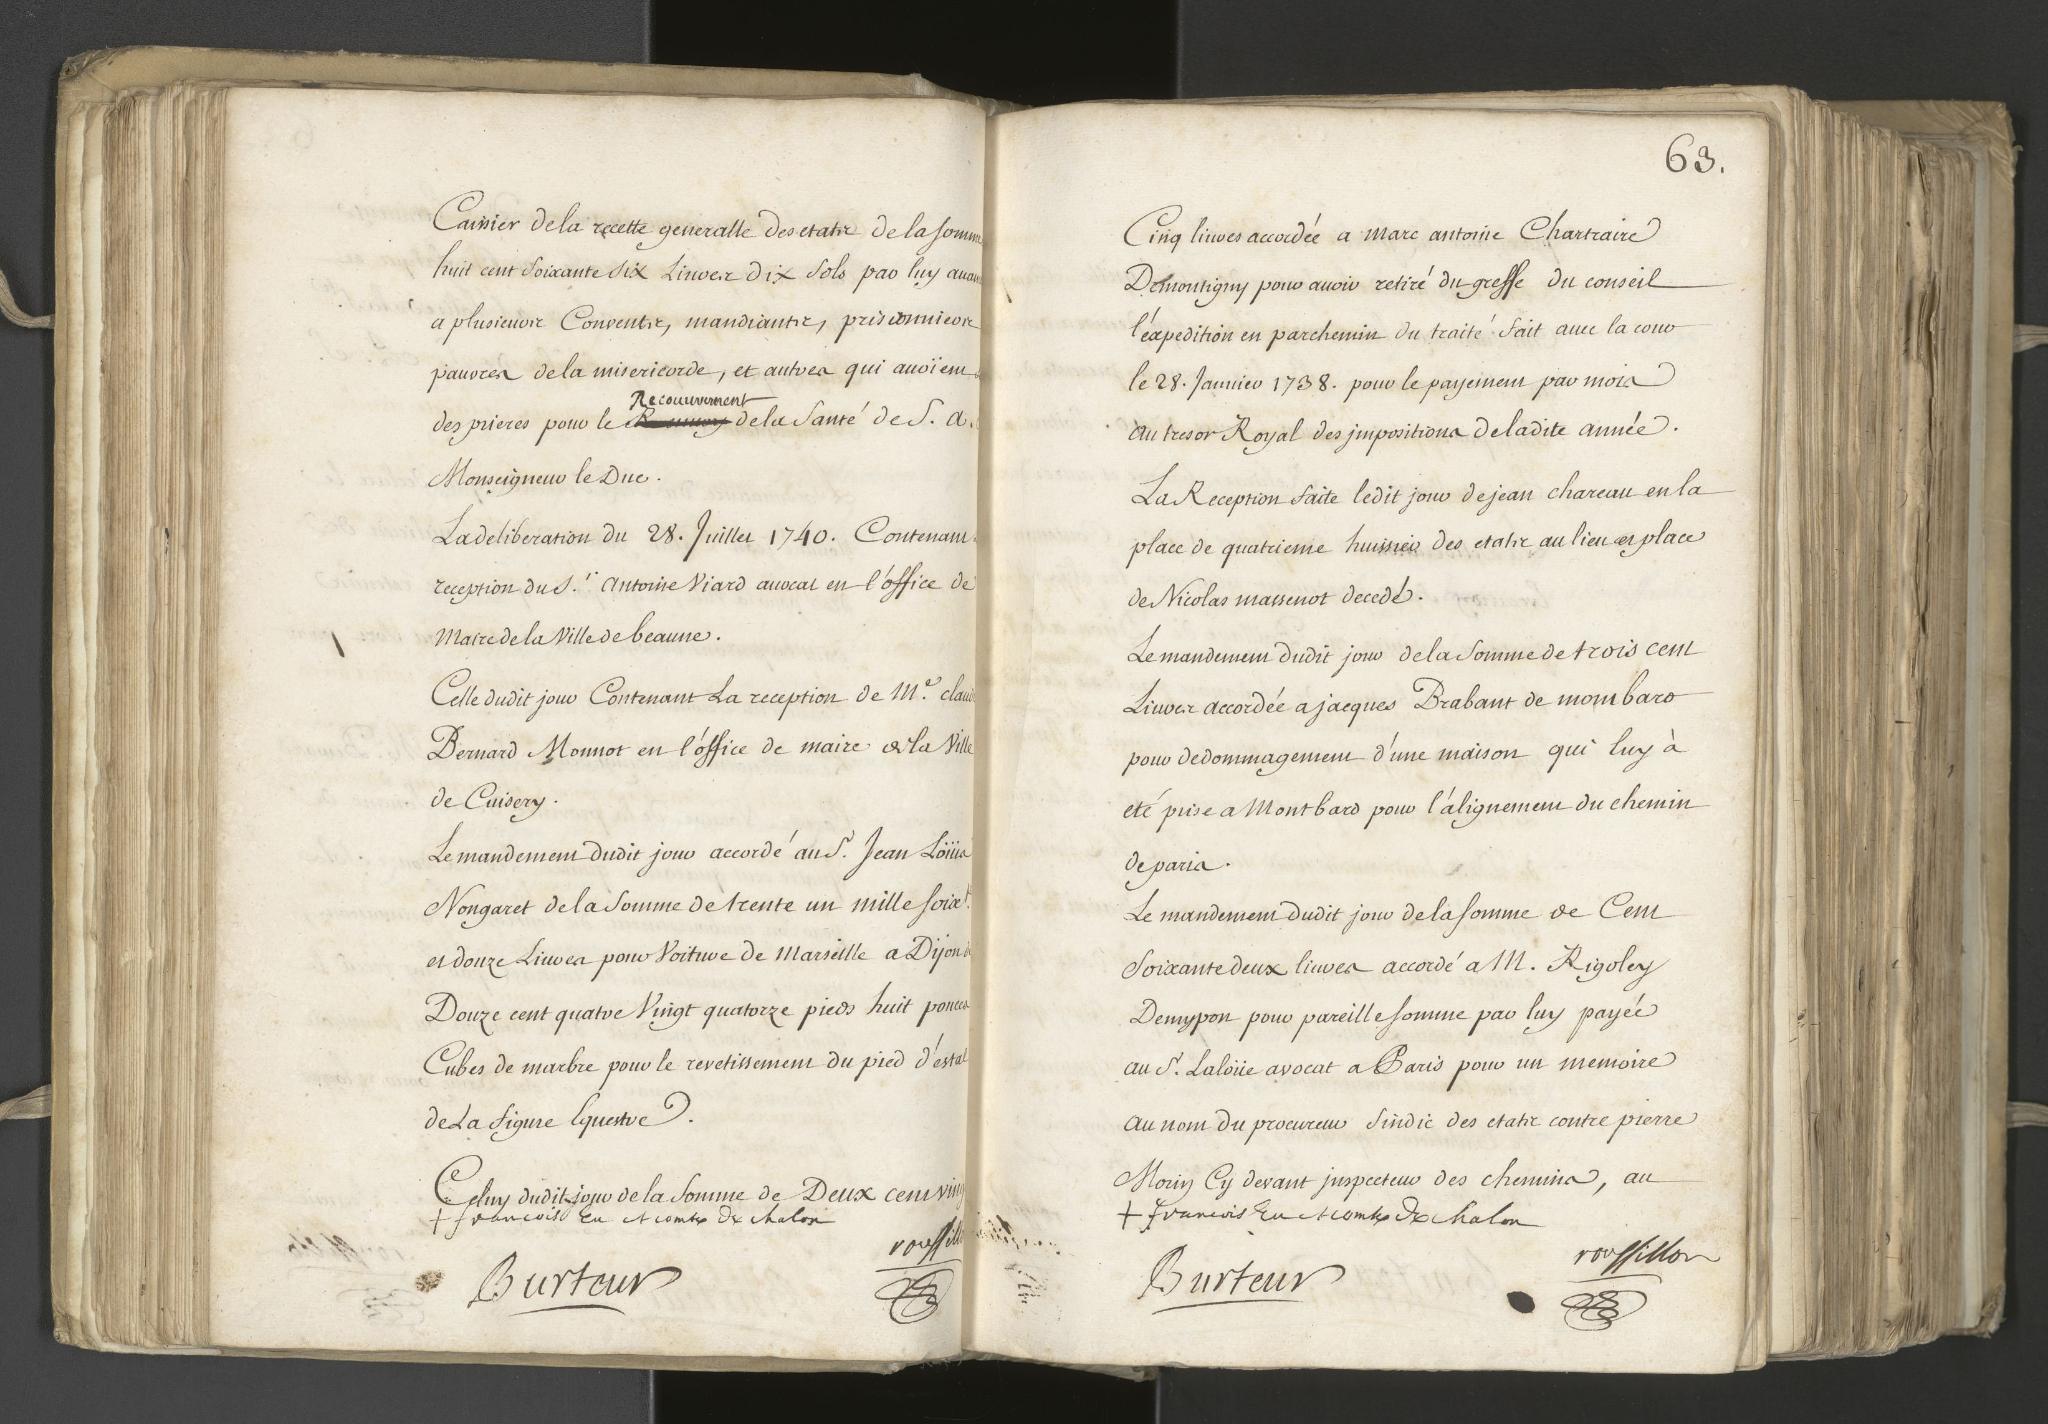 Caissier de la recette generalle des etats de la somme
huit cent soixante six Livres dix sols par luy avan
a plusieurs Convents, mandiants, prisonniers
pauvres de la misericorde, et autres qui avoient
Recouvrement
des prieres pour le de la Santé de S. A.
Monseigneur le Duc.
La deliberation du 28. Juillet 1740. Contenant
reception du S.r Antoine Viard avocat en l'office de
Maire de la Ville de beaune.
Celle dudit jour Contenant La reception de M.e claud
Bernard Monnot en l'office de maire de la Ville
de Cuisery.
Le mandement dudit jour accordé au S.r Jean Loüis
Nongaret de la Somme de trente un mille soixt.
et douze Livres pour Voiture de Marseille a Dijon
Douze cent quatre Vingt quatorze pieds huit pouces
Cubes de marbre pour le revetissement du pied d'estal
de La figure Equestre.
Celuy dudit jour de la Somme de Deux cent ving
+ françois Eu et comte de chalon
Burteur
roussillo
63.
Cinq livres accordée a Marc antoine Chartraire
Demontigny pour avoir retiré du greffe du conseil
l'éxpedition en parchemin du traité fait avec la cour
le 28. Janvier 1738. pour le payement par mois
au tresor Royal des jmpositions de ladite année.
La Reception faite ledit jour de jean chareau en la
place de quatrieme huissier des etats au lieu en place
de Nicolas massenot decedé.
Le mandement dudit jour de la Somme de trois cent
Livres accordée a jacques Brabant de mombard
pour dedommagement d'une maison qui luy à
eté prise a Montbard pour l'alignement du chemin
de paris.
Le mandement dudit jour de la somme de Cent
Soixante deux livres accordé a M. Rigoley
Demypon pour pareille somme par luy payée
au S.r Laloüe avocat a Paris pour un memoire
au nom du procureur Sindic des etats contre pierre
Morin Cy devant jnspecteur des chemins, au
+ françois Eu et comte de chalon
Burteur
roussillon